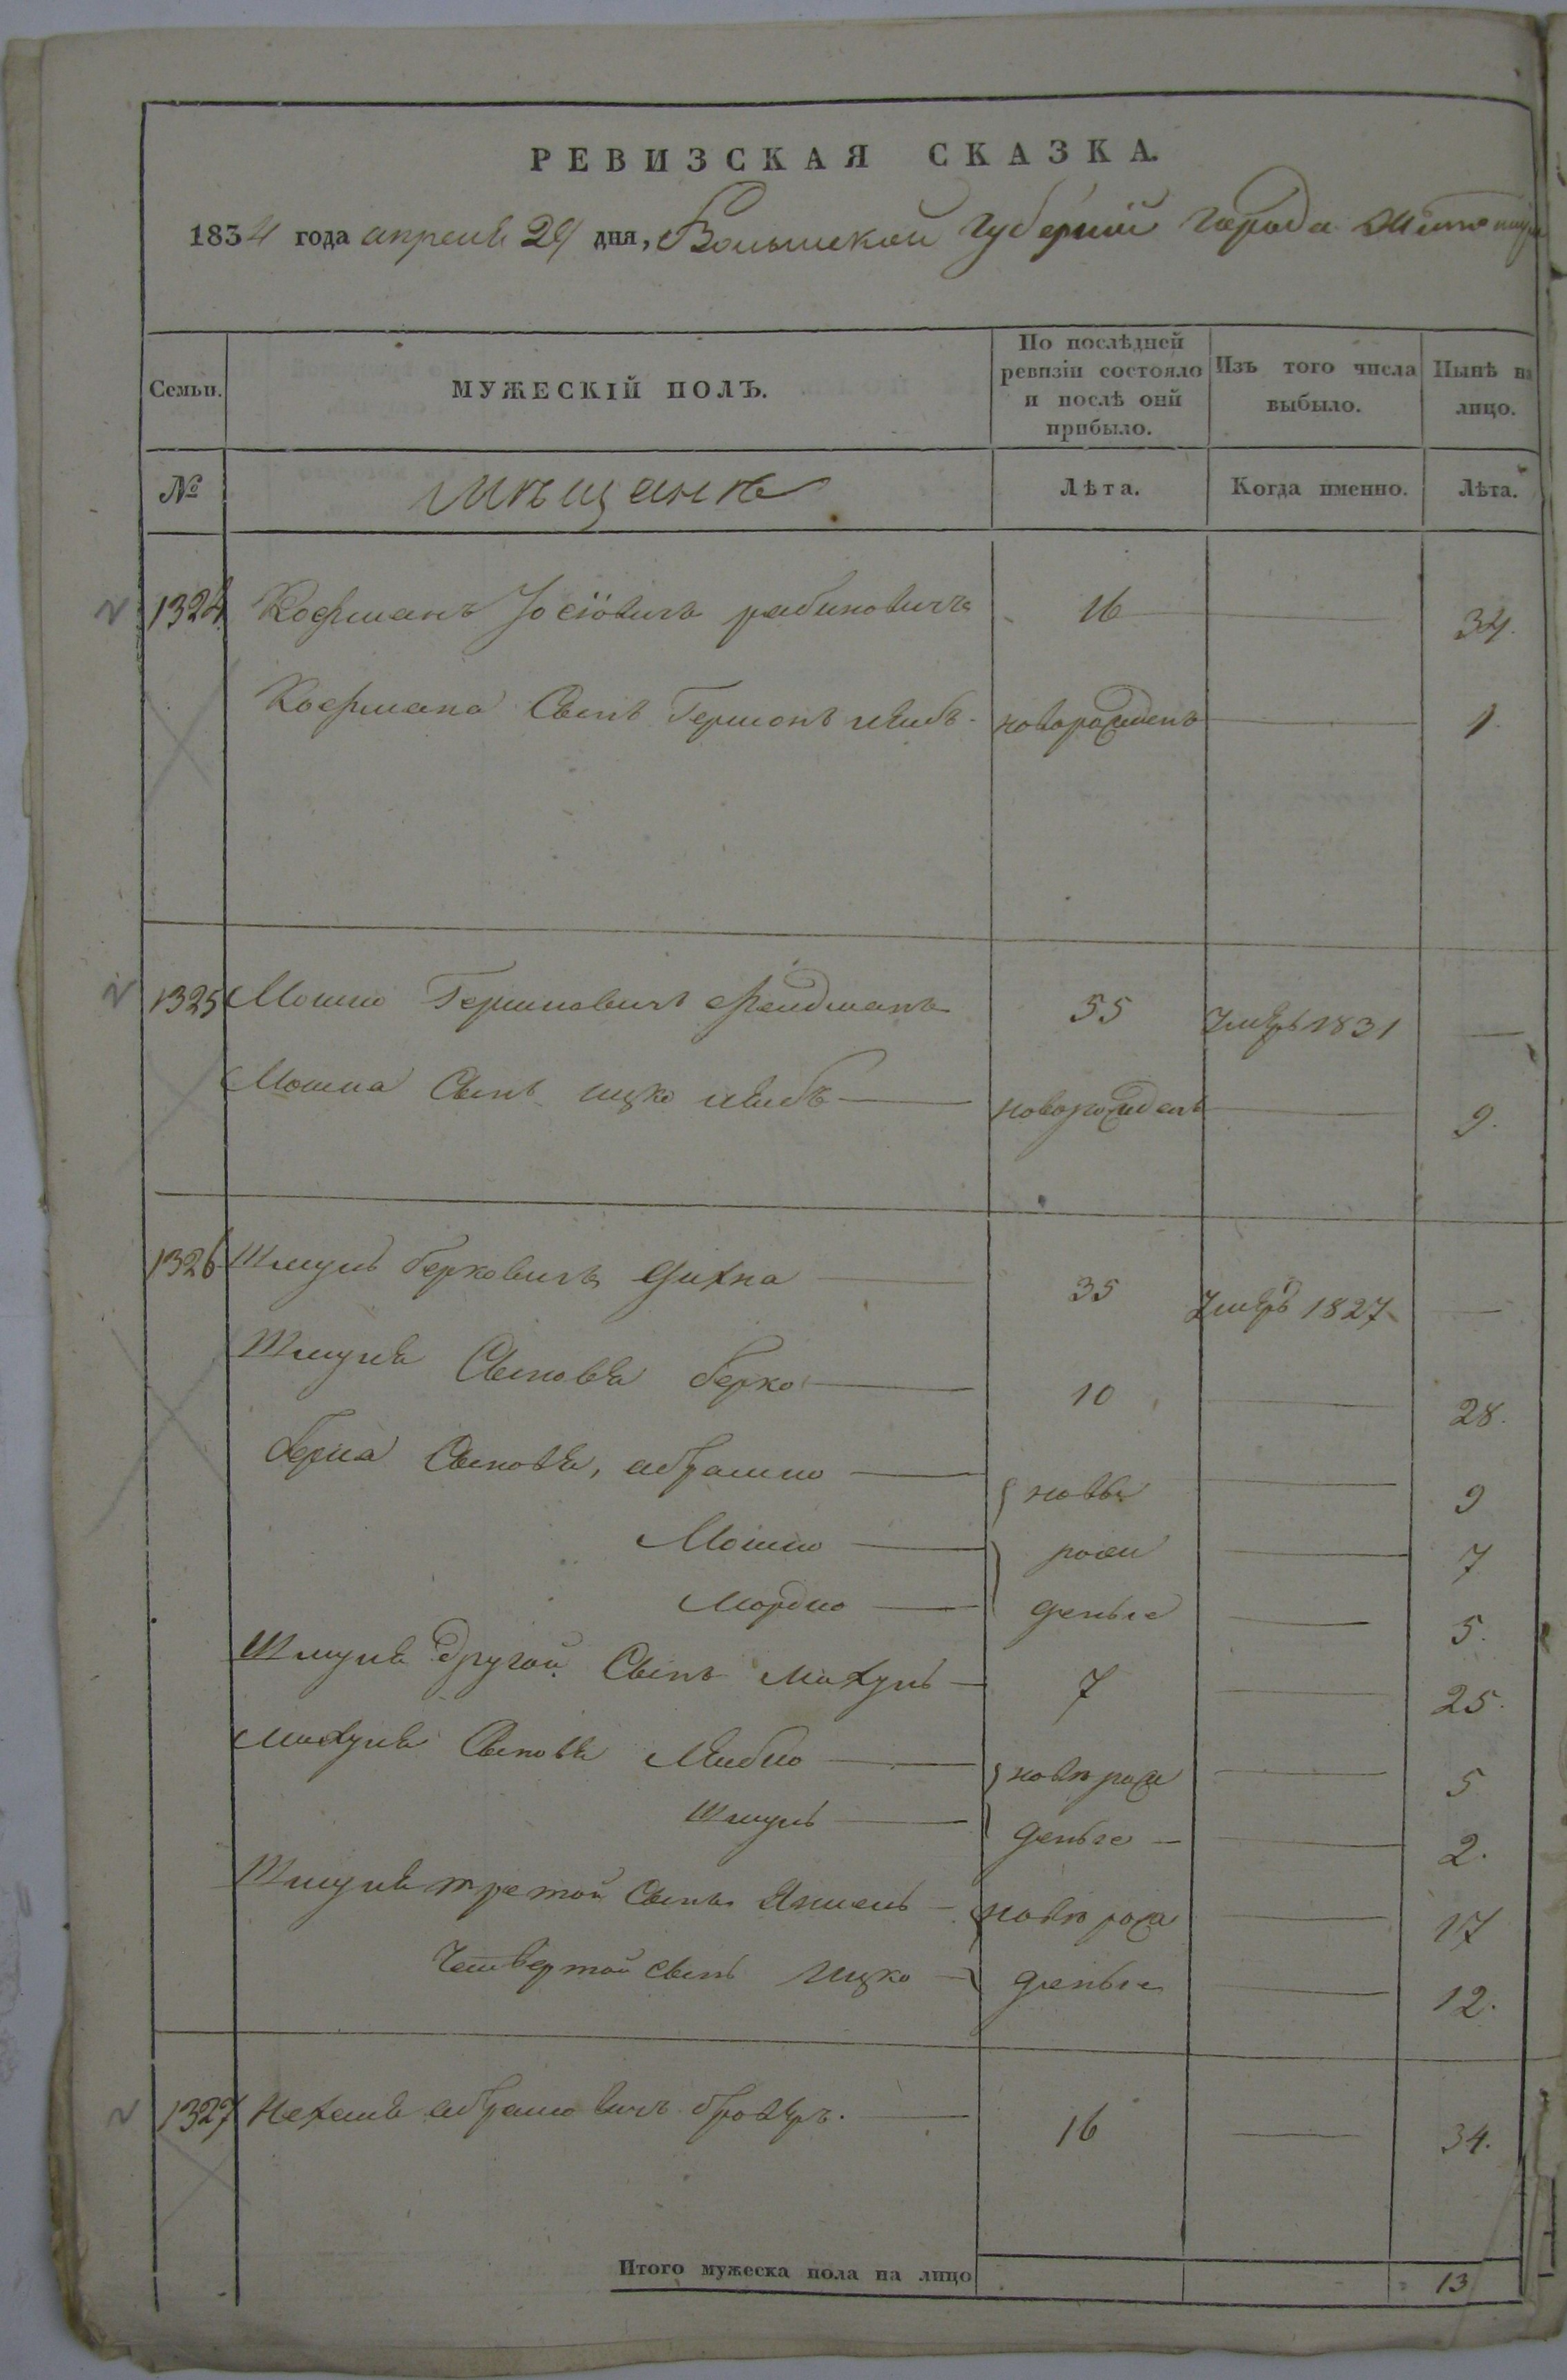 РЕВИЗСКАЯ СКАЗКА.
1834 года апреля 24 дня, Волынской Губерніи города Житомира
Семьи. МУЖЕСКІЙ ПОЛЪ. По послѣдней ревизіи состояло и послѣ оній прибыло. Изъ того числа выбыло. Нынѣ на лицо.
№ Мѣщанѣ Лѣта. Когда именно. Лѣта.
1324 Кофманъ Іосіовичъ рабиновичъ 16 — 34.
Кофмана Сынъ Гершонъ лейбъ новорожденъ — 1.
1325 Мошко Гершковичъ Фельдманъ 55 Умеръ 1831 —
Мошка Сынъ ицко лейбъ — новорожденъ — 9.
1326 Шмуль берковичъ — 35 Умеръ 1827 —
Шмуля Сыновья берко — 10 — 28.
берка Сыновья, абрамко — новь — 9
Мошко — рож — 7
Мордко — деные — 5.
Шмуля Другой Сынъ Михуль — 7 — 25.
Михуля Сыновья Лейбко — новорож — 5
Шмуль — деные — — 2.
Шмуля третой Сынъ Янкель — новорож — 17
Четвертой сынъ Ицко — деные — 12.
1327 Нехемя абрамовичъ броверъ. — 16 — 34.
Итого мужеска пола на лицо 13